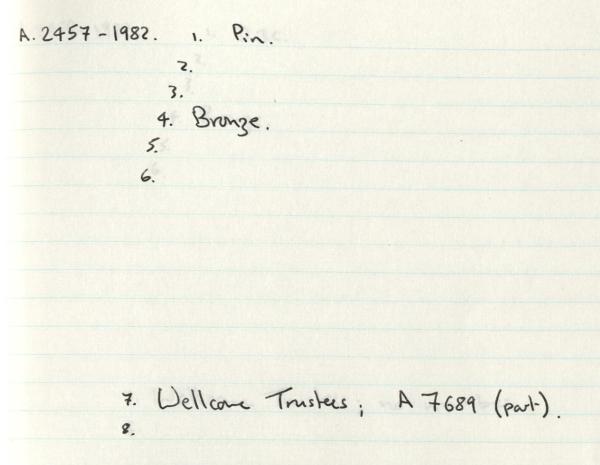 A. 2457-1982. 1. Pin.
2.
3.
4. Bronze.
5.
6.
7. Wellcome Trustees; A 7689 (part).
8.